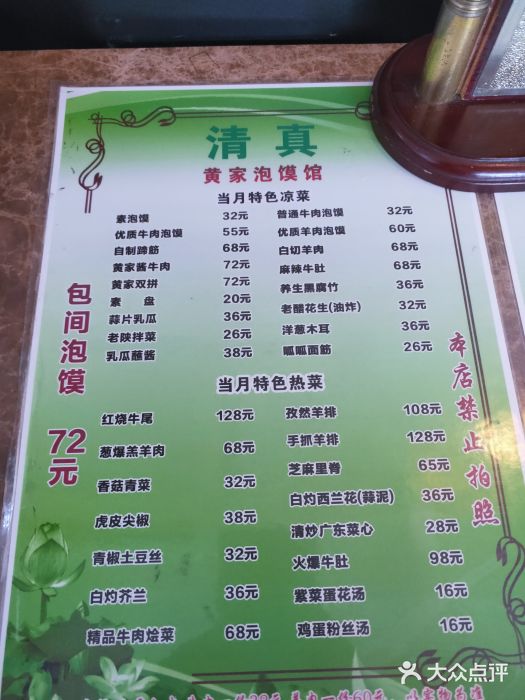 清真
黄家泡馍馆
当月特色凉菜
素泡馍 32元 普通牛肉泡馍 32元
优质牛肉泡馍 55元 优质羊肉泡馍 60元
自制蹄筋 68元 白切羊肉 68元
黄家酱牛肉 72元 麻辣牛肚 68元
黄家双拼 72元 养生黑腐竹 36元
素 盘 20元 老醋花生(油炸) 32元
蒜片乳瓜 36元 洋葱木耳 36元
老陕拌菜 26元 呱呱面筋 26元
乳瓜蘸酱 38元
当月特色热菜
红烧牛尾 128元 孜然羊排 108元
葱爆羔羊肉 68元 手抓羊排 128元
香菇青菜 32元 芝麻里脊 65元
虎皮尖椒 38元 白灼西兰花(蒜泥) 36元
青椒土豆丝 32元 清炒广东菜心 28元
白灼芥兰 36元 火爆牛肚 98元
精品牛肉烩菜 68元 紫菜蛋花汤 16元
鸡蛋粉丝汤 16元
包间泡馍
72元
本店禁止拍照
大众点评